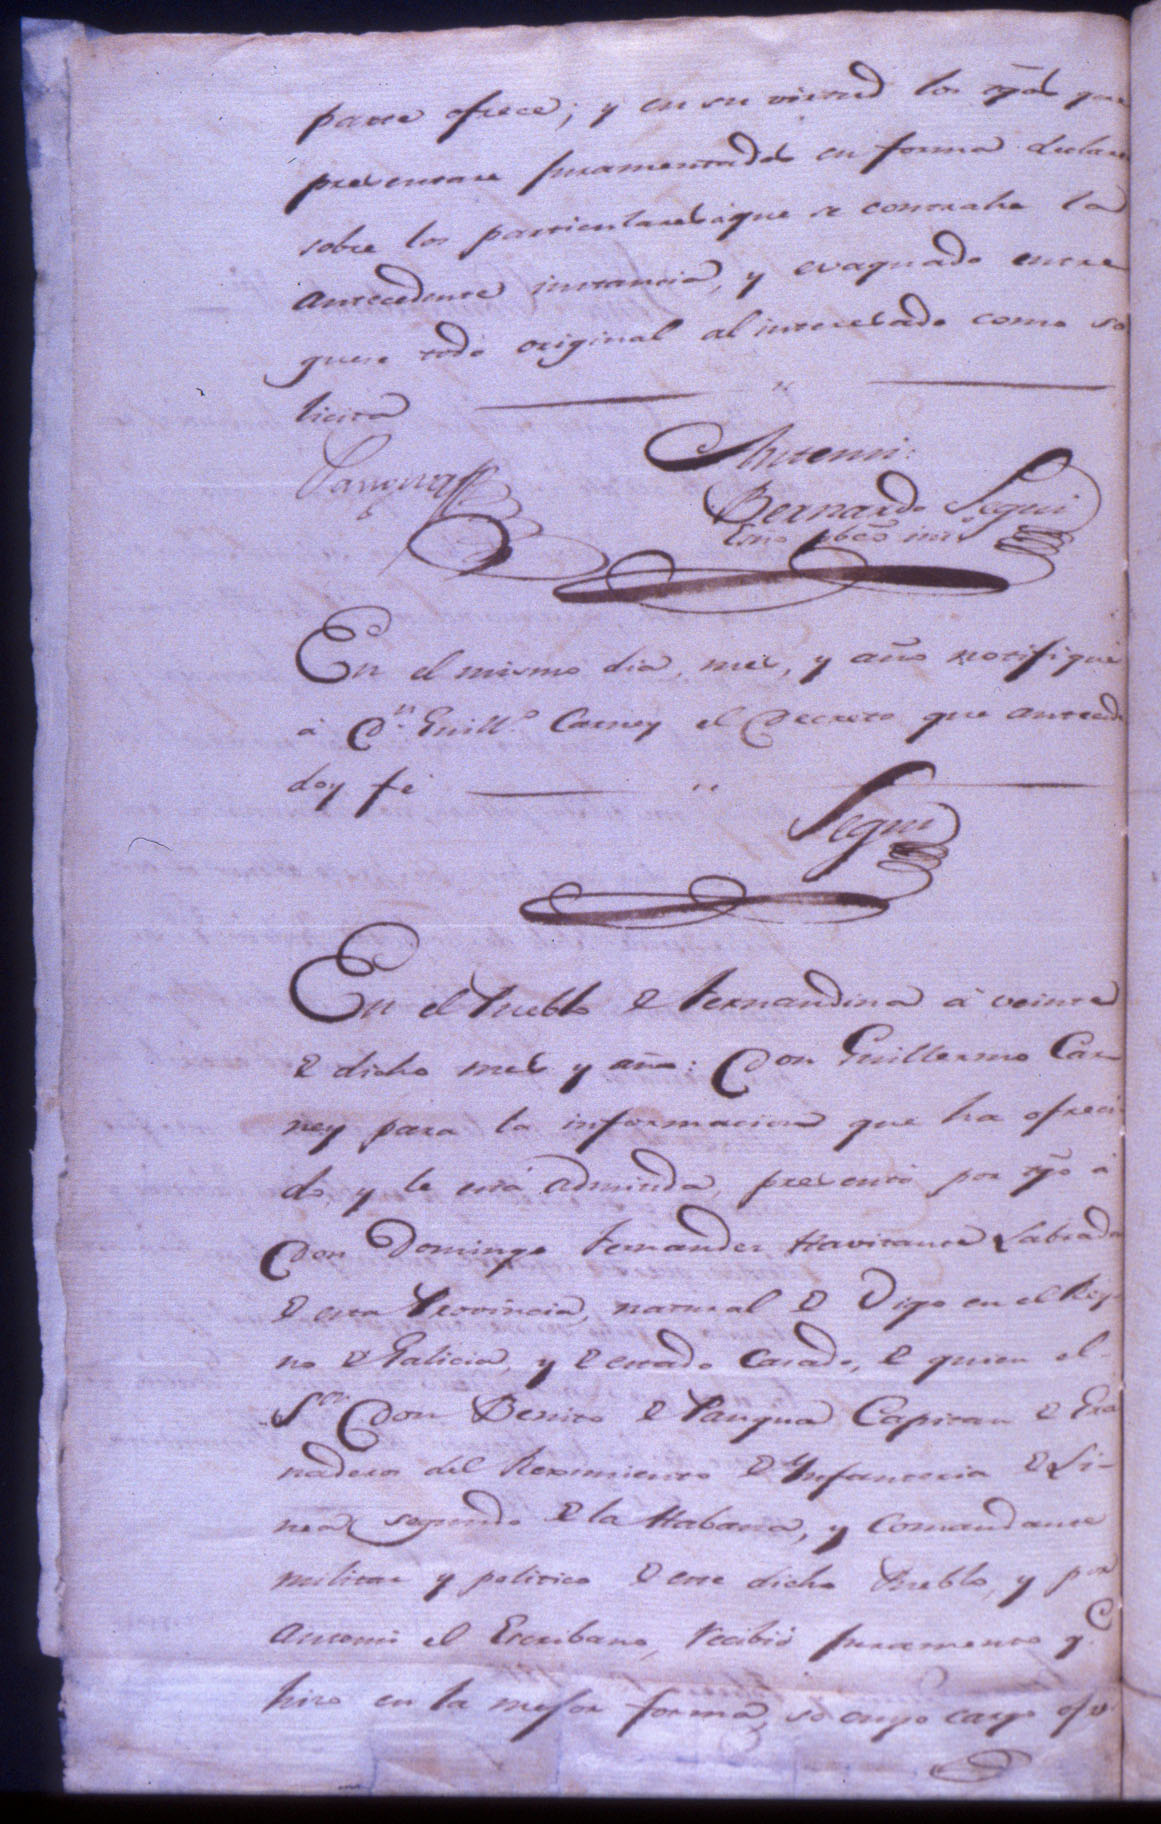 parte ofrece; y en su virtud los tg̃os que
presentare juramentados en forma declaren
sobre los particulares à que se contrahe la
antecedente instancia, y evaquado entre
guese todo original al interesado como so
licita
Pangua Antemi:
Bernardo Segui
Esño pbcõ intº
En el mismo dia, mes, y año notifiqué
à Dn. Guillº. Carney el Decreto que antecede
doy fé
Segui
En el Pueblo de Fernandina à veinte
de dicho mes y año: Don Guillermo Car
ney para la informacion que ha ofreci
do, y le está admitida, presentó por tg̃o à
Don Domingo Fernandez Havitante Labrador
de esta Provincia, natural de Vigo en el Rey
no de Galicia, y de estado Casado, de quien el
Sor. Don Benito de Pangua Capitan de Gra
naderos del Reximiento de Ynfanteria de Li-
nea segundo de la Habana, y Comandante
militar y politico de este dicho Pueblo, y por
Antemi el Escribano, recibió juramento q.e
hizo en la mejor forma, so cuyo cargo ofre